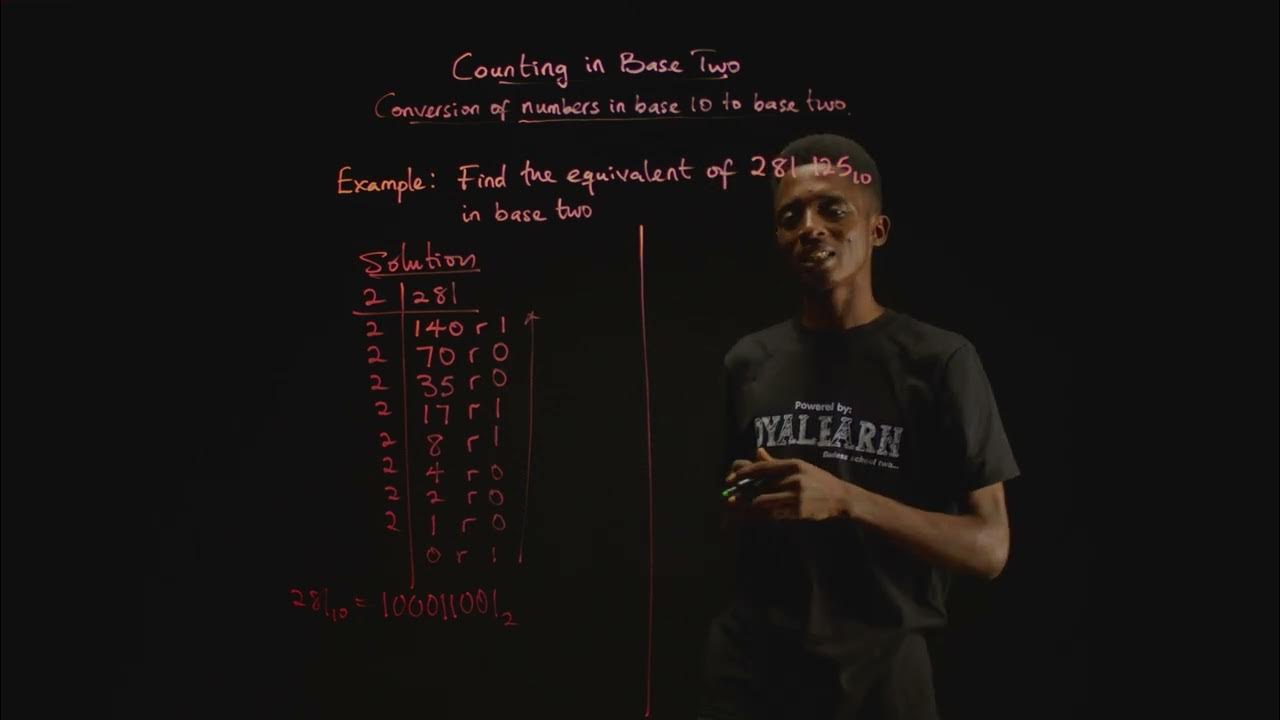 Counting in Base Two
Conversion of numbers in base 10 to base two.
Example: Find the equivalent of 281.125₁₀
in base two
Solution
2 | 281
2 | 140 r 1
2 | 70 r 0
2 | 35 r 0
2 | 17 r 1
2 | 8 r 1
2 | 4 r 0
2 | 2 r 0
2 | 1 r 0
0 r 1
281₁₀ = 100011001₂
Powered by: